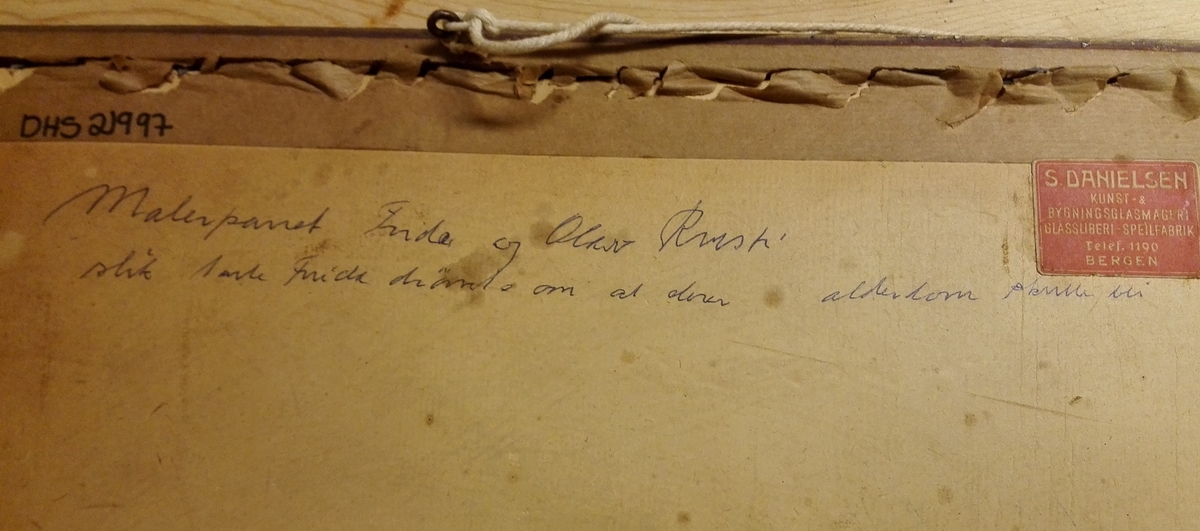 DHS 21997
Malerparret Frida og Olav Rusti
slik Frida drømte om at deres alderdom skulle bli
S. DANIELSEN
KUNST- &
BYGNINGSGLASMAGERI
GLASSLIBERI-SPEILFABRIK
Telef. 1190
BERGEN